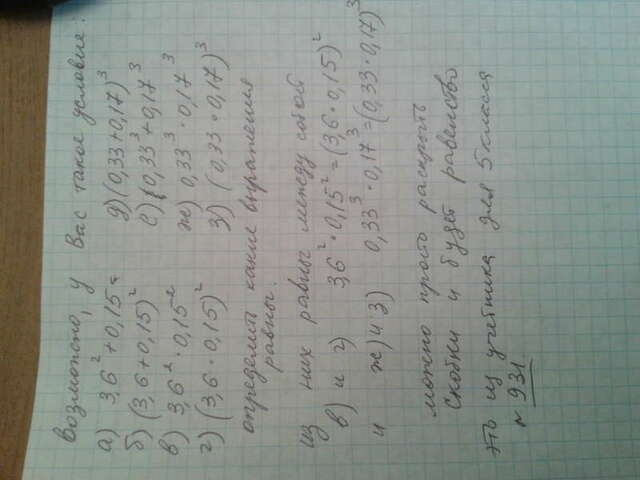 Возможно, у Вас такое условие:
а) 3,6² + 0,15² д) (0,33+0,17)³
б) (3,6+0,15)² е) (0,33³+0,17³
в) 3,6² · 0,15² ж) 0,33³ · 0,17³
г) (3,6 · 0,15)² з) (0,33 · 0,17)³
определить какие выражения
равны.
из них равны между собой
в) и г) 3,6² · 0,15² = (3,6 · 0,15)²
и ж) и з) 0,33³ · 0,17³ = (0,33 · 0,17)³
можно просто раскрыть
скобки и будет равенство
это из учебника для 5 класса
№ 931